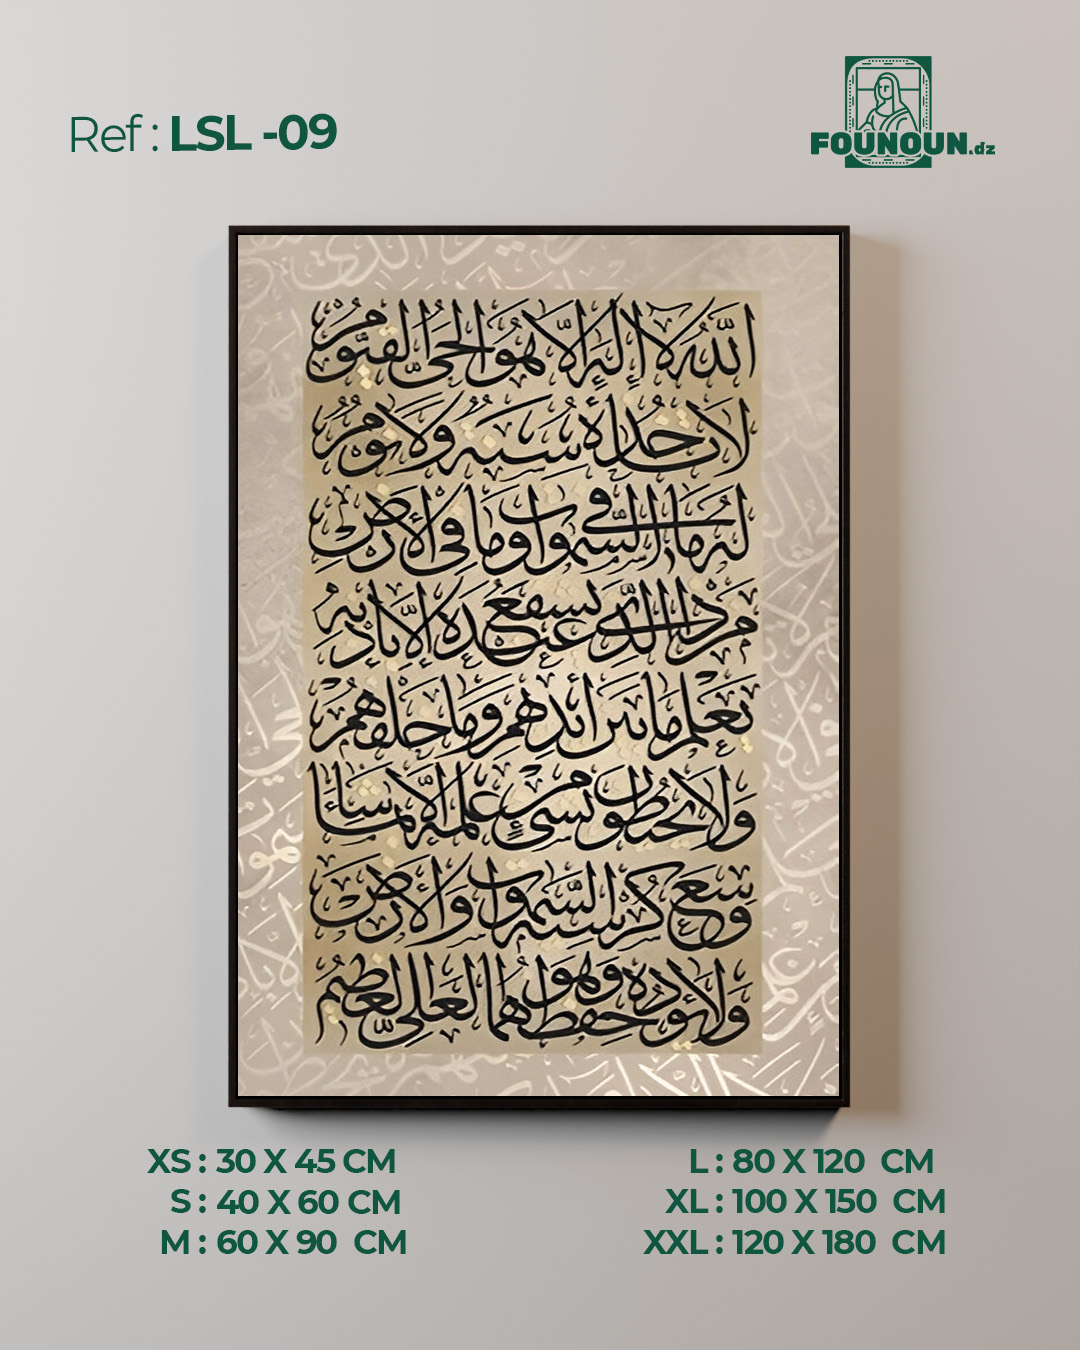 Ref : LSL -09
FOUNOUN.dz
الله لا إله إلا هو الحي القيوم
لا تأخذه سنة ولا نوم
له ما في السموات وما في الأرض
من ذا الذي يشفع عنده إلا بإذنه
يعلم ما بين أيديهم وما خلفهم
ولا يحيطون بشيء من علمه إلا بما شاء
وسع كرسيه السموات والأرض
ولا يؤوده حفظهما وهو العلي العظيم
XS : 30 X 45 CM
S : 40 X 60 CM
M : 60 X 90 CM
L : 80 X 120 CM
XL : 100 X 150 CM
XXL : 120 X 180 CM